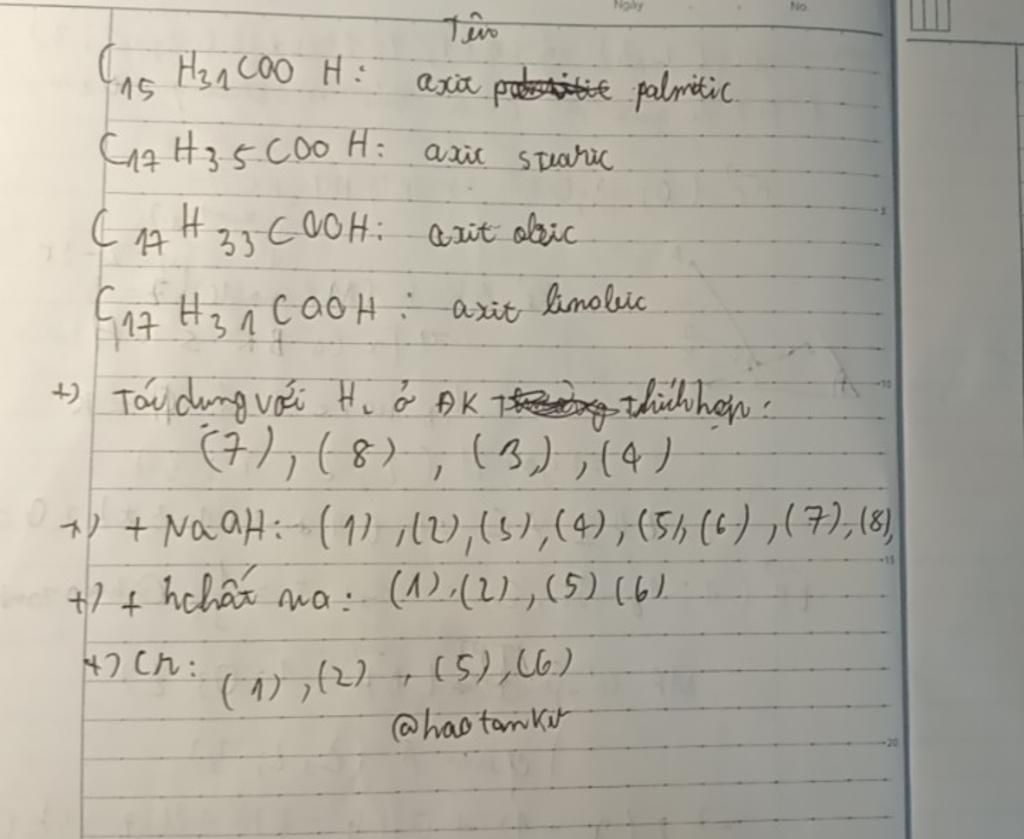 Ngày No.
Tên
C15H31COOH: axit palmitic
C17H35COOH: axit stearic
C17H33COOH: axit oleic
C17H31COOH: axit linoleic
+) Tác dụng với H2 ở ĐK thích hợp:
(7), (8), (3), (4)
+) + NaOH: (1), (2), (3), (4), (5), (6), (7), (8),
+) + hchất na: (1), (2), (5) (6)
+) Cr: (1), (2), (5), (6)
@haotankit
5
10
15
20